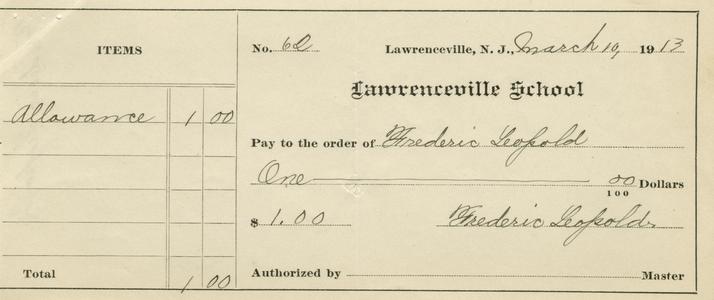 ITEMS
Allowance 1 00
Total 1 00
No. 62 Lawrenceville, N. J., March 10, 1913
Lawrenceville School
Pay to the order of Frederic Leopold
One 00/100 Dollars
$ 1.00 Frederic Leopold.
Authorized by Master